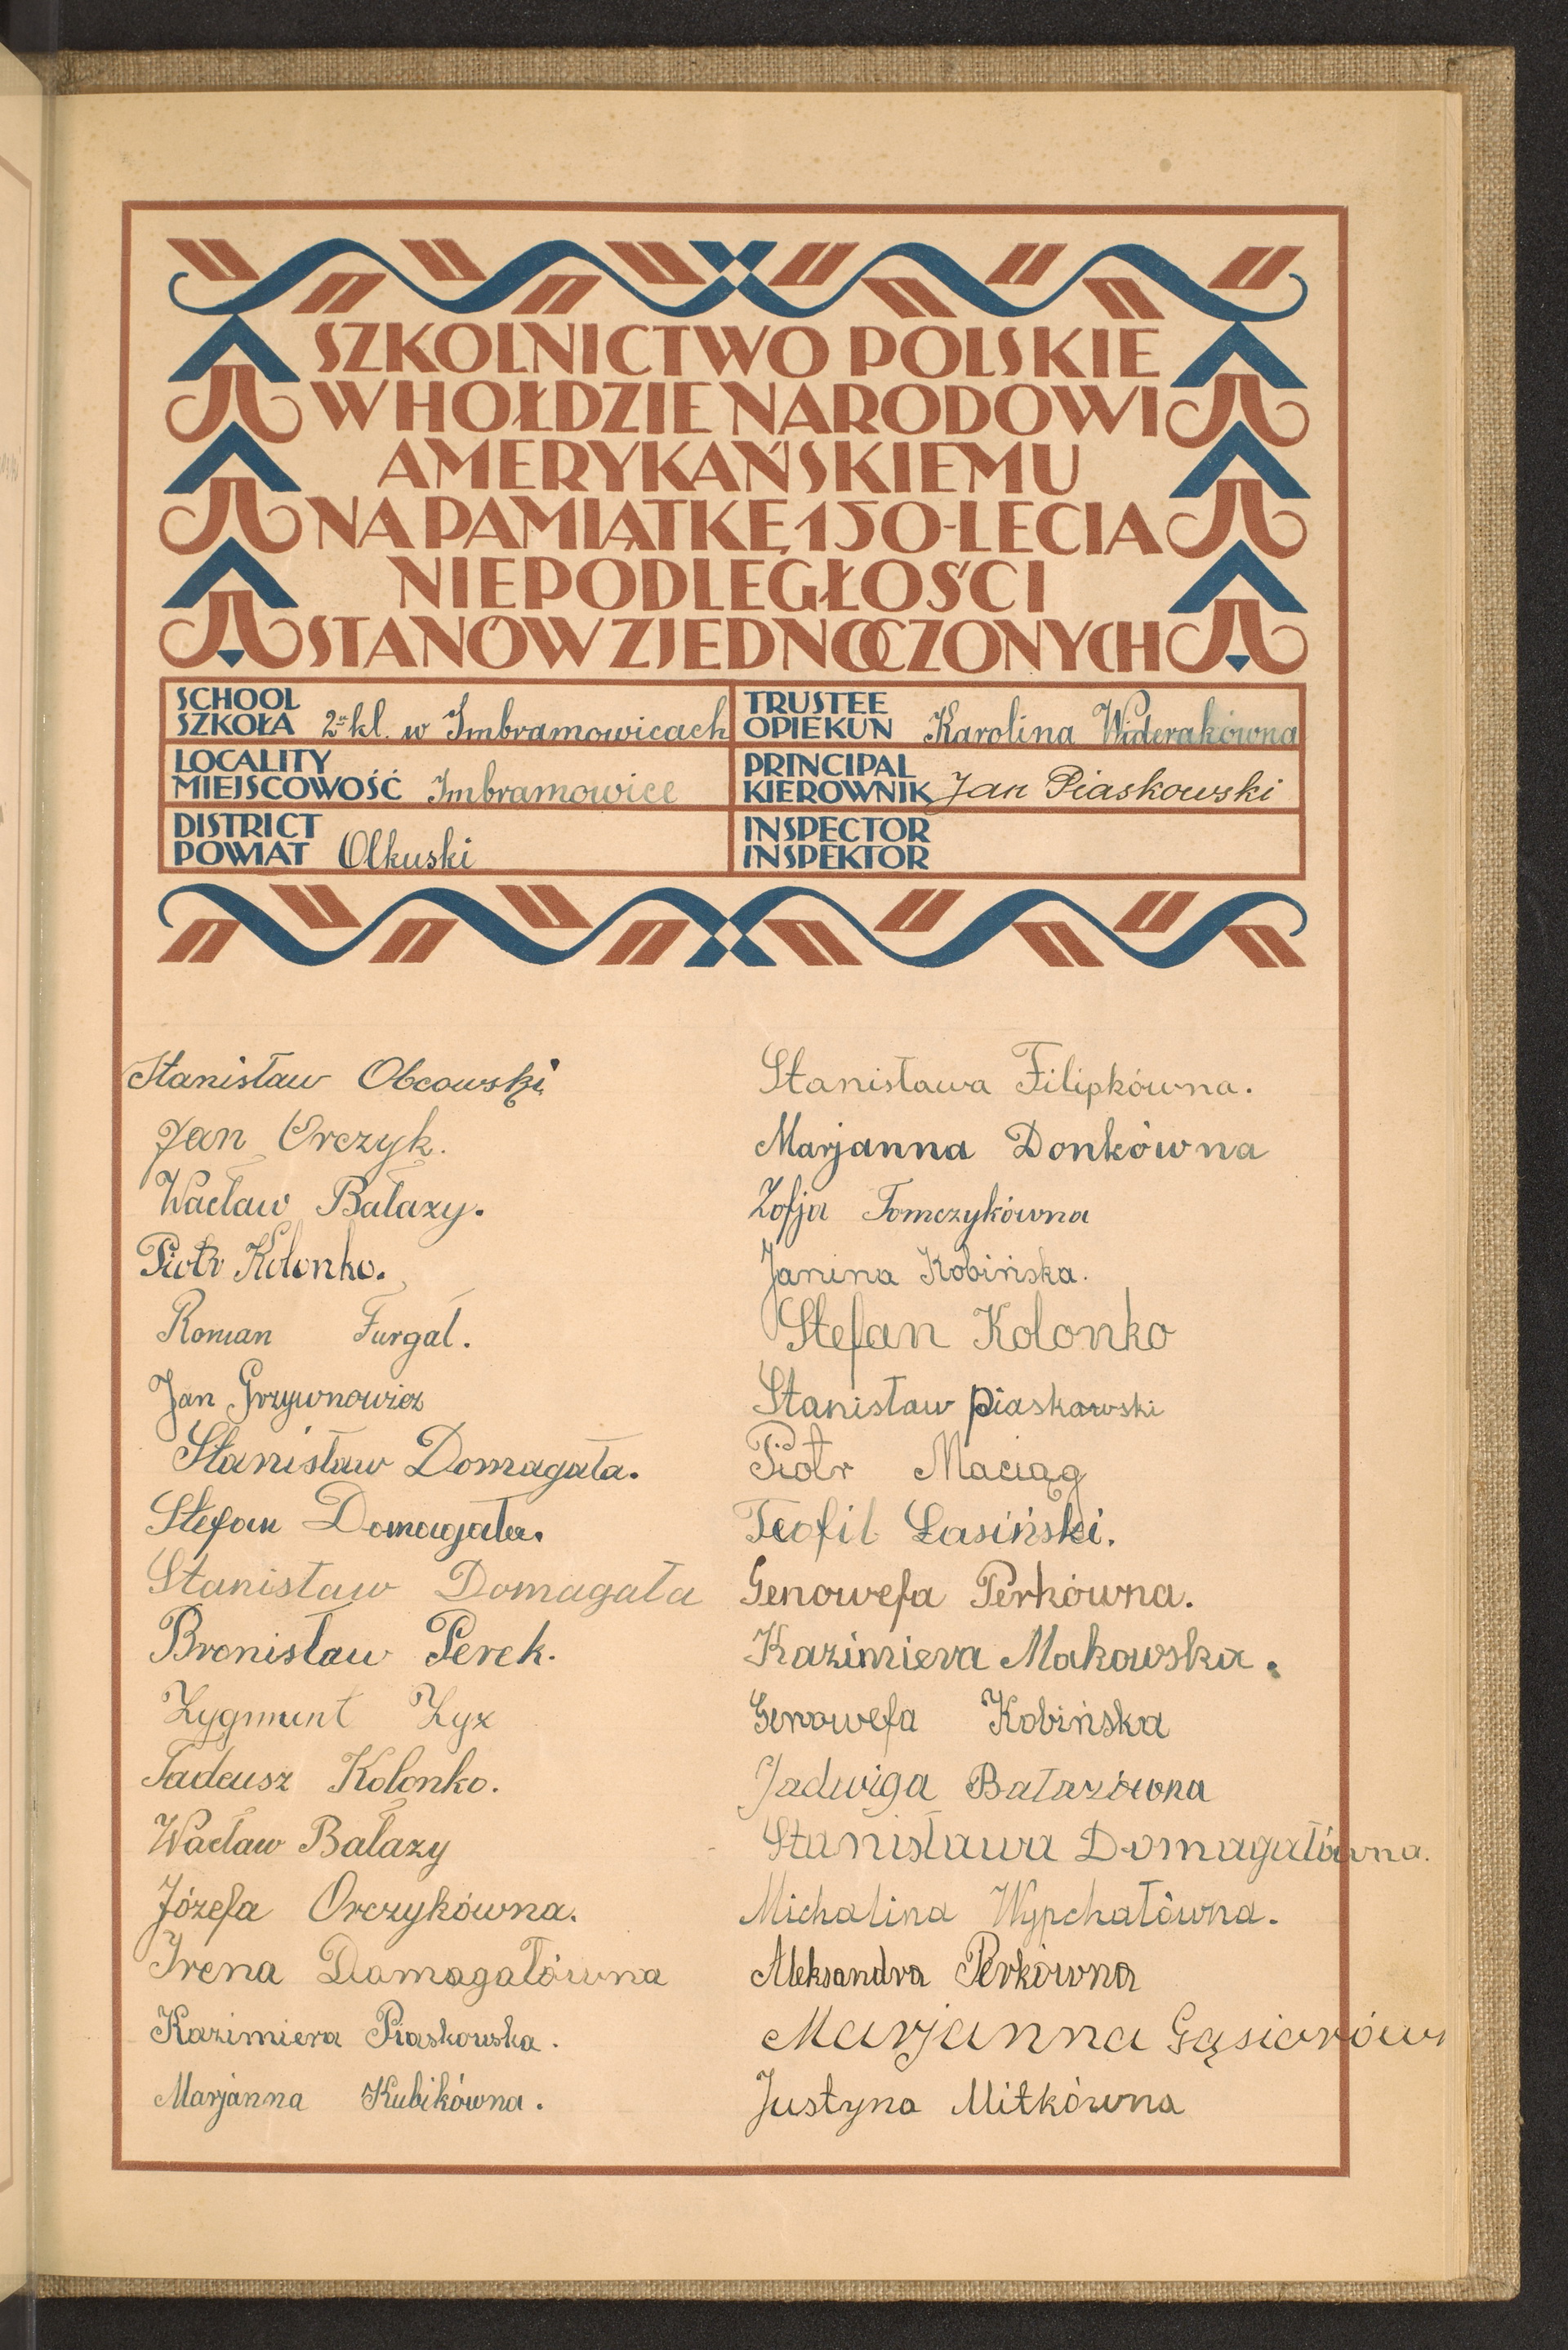 SZKOLNICTWO POLSKIE
W HOŁDZIE NARODOWI
AMERYKAŃSKIEMU
NA PAMIĄTKĘ 150-LECIA
NIEPODLEGŁOŚCI
STANÓW ZJEDNOCZONYCH
SCHOOL
SZKOŁA 2-kl. w Imbramowicach
TRUSTEE
OPIEKUN Karolina Widerakówna
LOCALITY
MIEJSCOWOŚĆ Imbramowice
PRINCIPAL
KIEROWNIK Jan Piaskowski
DISTRICT
POWIAT Olkuski
INSPECTOR
INSPEKTOR
Stanisław Obcowski
Jan Orczyk.
Wacław Bałazy.
Piotr Kolonko.
Roman Furgał.
Jan Grzywnowicz
Stanisław Domagała.
Stefan Domagała.
Stanisław Domagała
Bronisław Perek.
Zygmunt Zyx
Tadeusz Kolonko.
Wacław Bałazy
Józefa Orczykówna.
Irena Damagałówna
Kazimiera Piaskowska.
Marjanna Kubikówna.
Stanisława Filipkówna.
Marjanna Donkówna
Zofja Tomczykówna
Janina Kobińska.
Stefan Kolonko
Stanisław piaskowski
Piotr Maciąg
Teofil Łasiński.
Genowefa Perkówna.
Kazimiera Makowska.
Genowefa Kobińska
Jadwiga Bałazówna
Stanisława Domagałówna.
Michalina Wypchałówna.
Aleksandra Perkówna
Marjanna Gąsiorów
Justyna Mitkówna